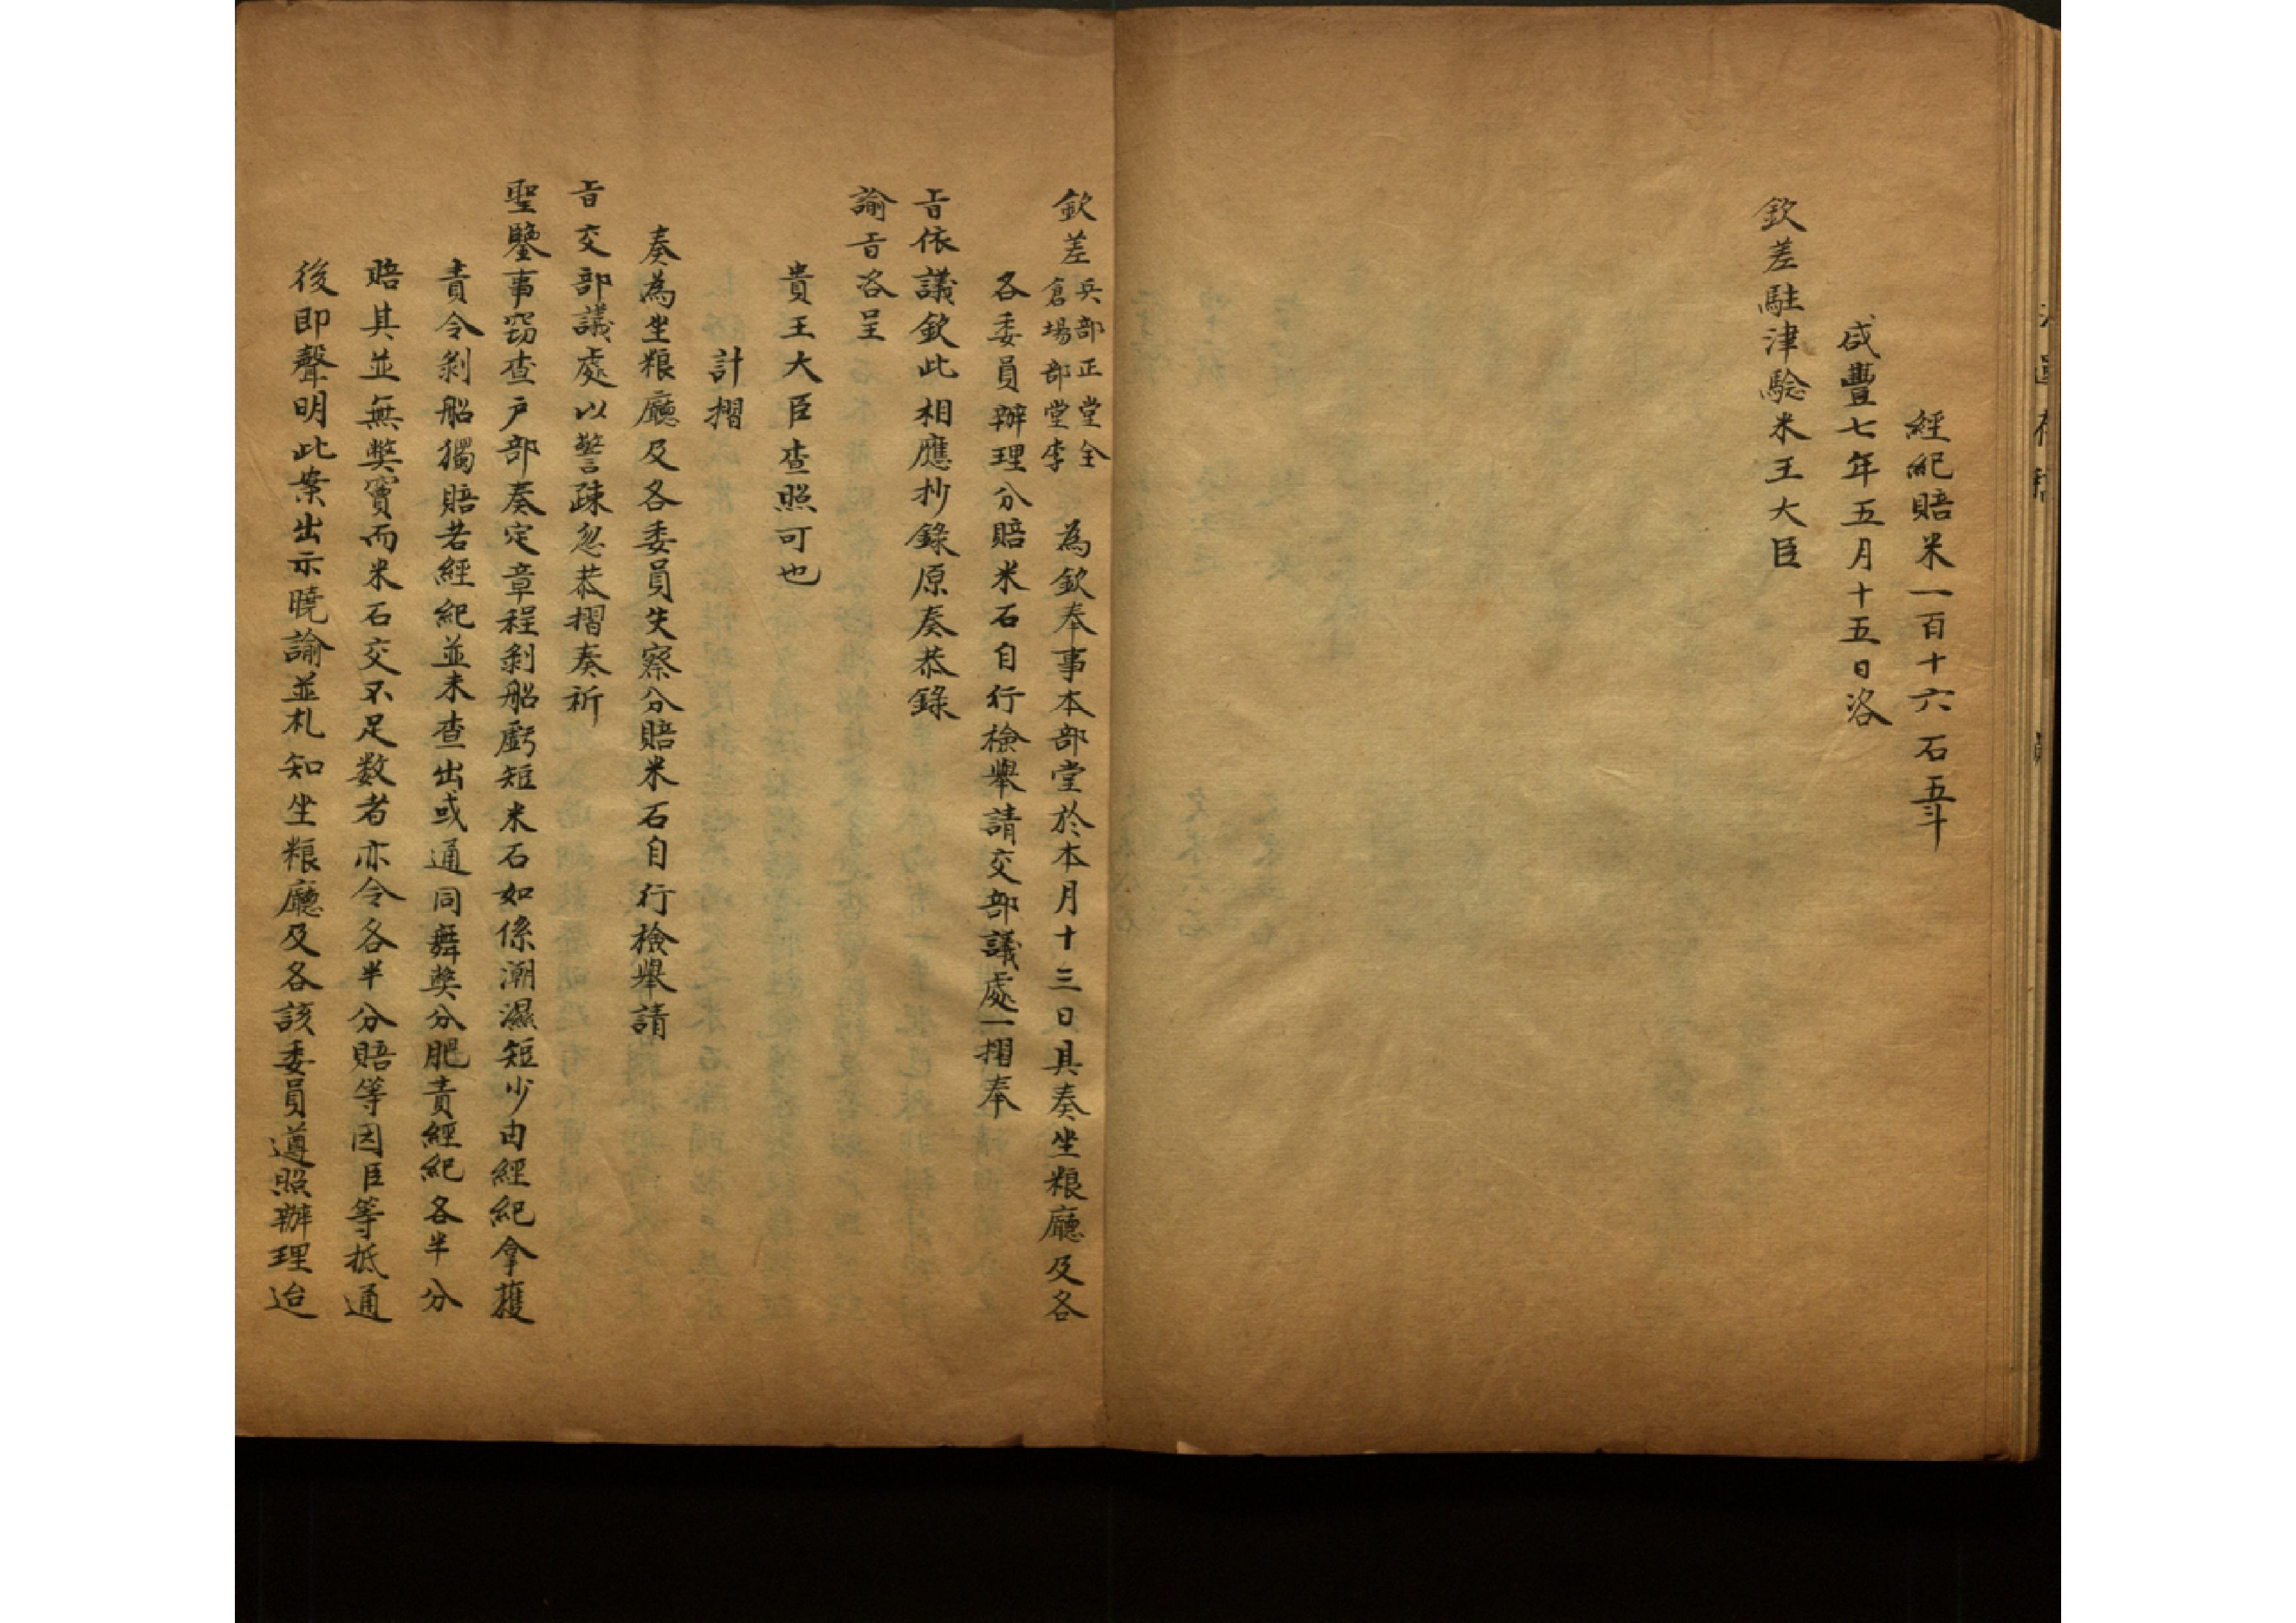 經紀賠米一百十六石五斗
咸豐七年五月十五日洛
欽差駐津驗米王大臣
欽差
兵部正堂全
倉場部堂李
為欽奉事本部堂於本月十三日具奏坐粮廳及各
各委員辦理分賠米石自行檢舉請交部議處一摺奉
旨依議欽此相應抄錄原奏恭錄
諭旨咨呈
貴王大臣查照可也
計摺
奏為坐粮廳及各委員失察分賠米石自行檢舉請
旨交部議處以警疎忽恭摺奏祈
聖鑒事竊查戶部奏定章程剝船虧短米石如係潮濕短少由經紀拿獲
責令剝船獨賠若經紀並未查出或通同舞獘分肥責經紀各半分
賠其並無獘竇而米石交不足数者亦令各半分賠等因臣等抵通
後即聲明此案出示曉諭並札知坐粮廳及各該委員遵照辦理迨